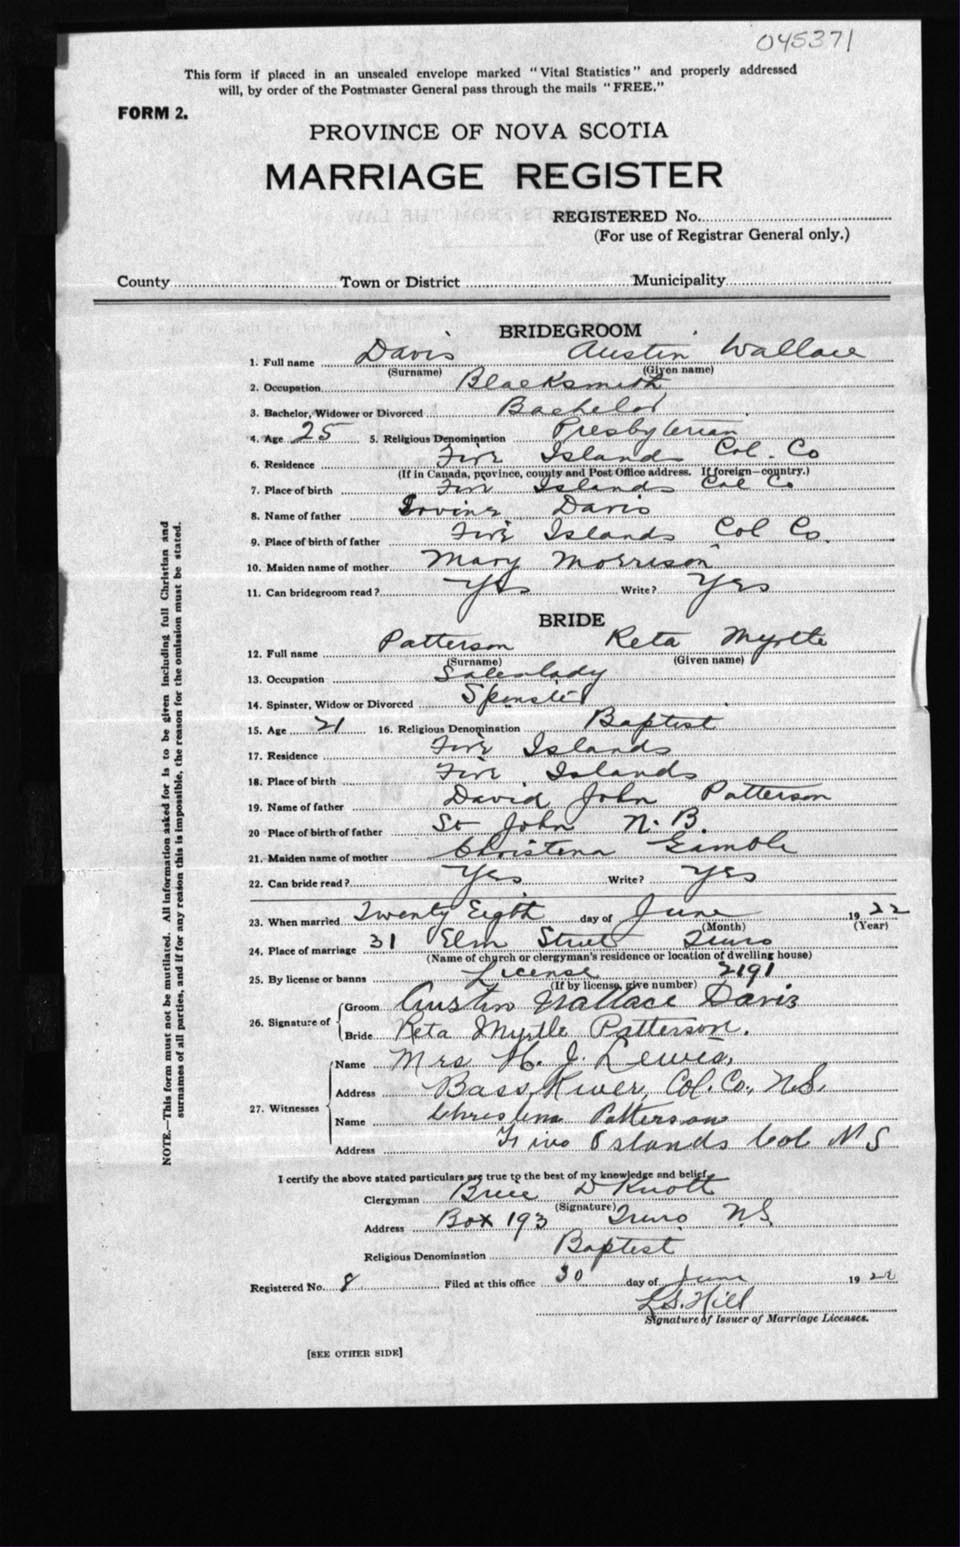 045371
This form if placed in an unsealed envelope marked "Vital Statistics" and properly addressed
will, by order of the Postmaster General pass through the mails "FREE."
FORM 2.
PROVINCE OF NOVA SCOTIA
MARRIAGE REGISTER
REGISTERED No.
(For use of Registrar General only.)
County Town or District Municipality
BRIDEGROOM
1. Full name Davis Austin Wallace
(Surname) (Given name)
2. Occupation Blacksmith
3. Bachelor, Widower or Divorced Bachelor
4. Age 25 5. Religious Denomination Presbyterian
6. Residence Five Islands Col. Co
(If in Canada, province, county and Post Office address. If foreign—country.)
7. Place of birth Five Islands Col Co
8. Name of father Irvine Davis
9. Place of birth of father Five Islands Col Co.
10. Maiden name of mother Mary Morrison
11. Can bridegroom read? Yes Write? Yes
BRIDE
12. Full name Patterson Reta Myrtle
(Surname) (Given name)
13. Occupation Saleslady
14. Spinster, Widow or Divorced Spinster
15. Age 21 16. Religious Denomination Baptist
17. Residence Five Islands
18. Place of birth Five Islands
19. Name of father David John Patterson
20 Place of birth of father St John N. B.
21. Maiden name of mother Christena Gamble
22. Can bride read? Yes Write? Yes
23. When married Twenty Eigth day of June 1922
(Month) (Year)
24. Place of marriage 31 Elm Street Truro
(Name of church or clergyman's residence or location of dwelling house)
25. By license or banns License 2191
(If by license, give number)
26. Signature of Groom Austin Wallace Davis
Bride Reta Myrtle Patterson.
27. Witnesses Name Mrs H. J. Lewis,
Address Bass River, Col. Co., N.S.
Name Christena Patterson
Address Five Islands Col N S
I certify the above stated particulars are true to the best of my knowledge and belief,
Clergyman D Knott
(Signature)
Address Box 193 Truro N.S.
Religious Denomination Baptist
Registered No. 8 Filed at this office 30 day of June 1922
L.S. Hill
Signature of Issuer of Marriage Licenses.
[SEE OTHER SIDE]
NOTE.—This form must not be mutilated. All information asked for is to be given including full Christian and
surnames of all parties, and if for any reason this is impossible, the reason for the omission must be stated.